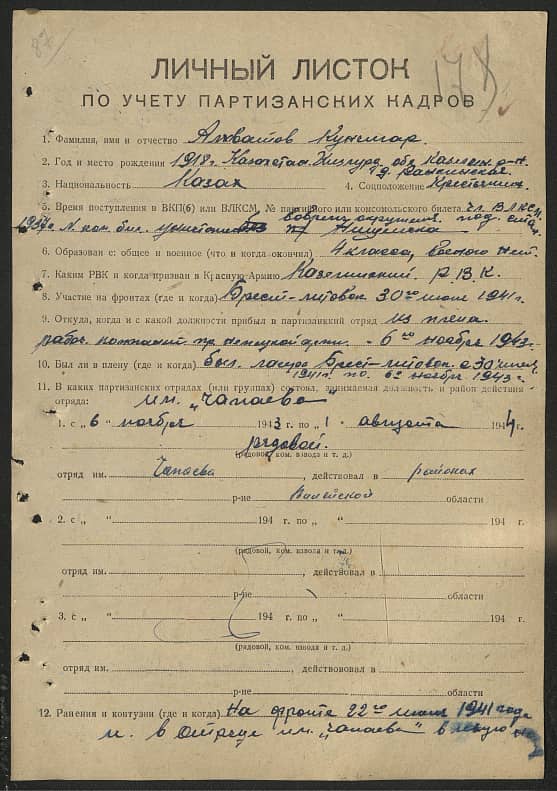 87
178
ЛИЧНЫЙ ЛИСТОК
ПО УЧЕТУ ПАРТИЗАНСКИХ КАДРОВ
1. Фамилия, имя и отчество Ахватов
2. Год и место рождения 1918 г. обл.
3. Национальность Казах 4. Соцположение Крестьянин
5. Время поступления в ВКП(б) или ВЛКСМ, № партийного или комсомольского билета чл. ВЛКСМ
во время окружен. под
6. Образован е: общее и военное (что и когда окончил) 4 класса, нет.
7. Каким РВК и когда призван в Красную Армию Р.В.К.
8. Участие на фронтах (где и когда) Брест-литовск 30го 1941 г.
9. Откуда, когда и с какой должности прибыл в партизанский отряд из плена
рабоч. 6го ноября 1943 г.
10. Был ли в плену (где и когда) Был Брест-литовск с 30
1941 г. по 6го ноября 1943 г.
11. В каких партизанских отрядах (или группах) состоял, занимаемая должность и район действия
отряда: им. „Чапаева"
1. с „6" ноября 1943 г. по „1" августа 1944 г.
рядовой.
(рядовой, ком. взвода и т. д.)
отряд им. Чапаева, действовал в районах
р-не Вилейской области
2. с „ " 194 г. по „ " 194 г.
(рядовой, ком. взвода и т. д.)
отряд им. , действовал в
р-не области
3. с „ " 194 г. по „ " 194 г.
(рядовой, ком. взвода и т. д.)
отряд им. , действовал в
р-не области
12. Ранения и контузии (где и когда) На фронте 22го 1941 года
и в отряде им. „Чапаева" в